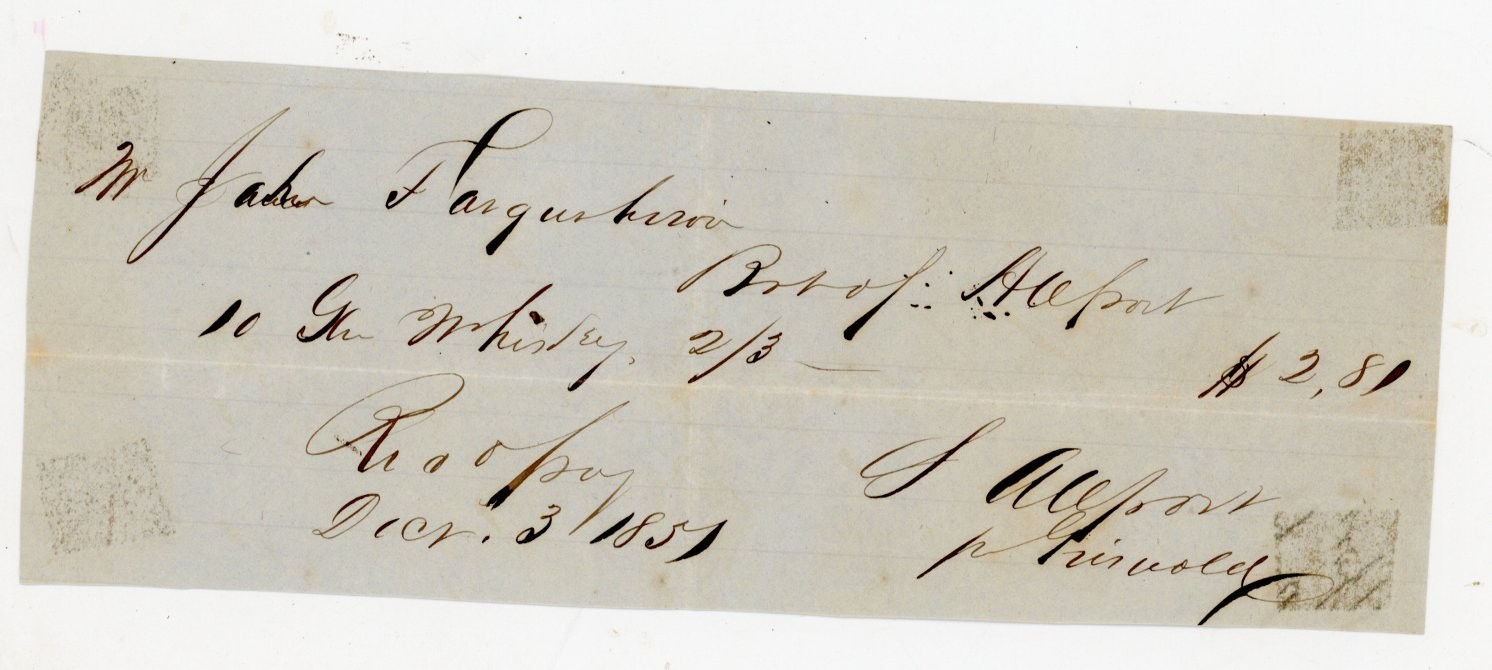 Mr John Fargusheson
Bot of S Allport
10 Gln Whiskey, 2/3 — $2,81
Rec'd pay
Decr. 3 1851
S Allport
pr Griswold